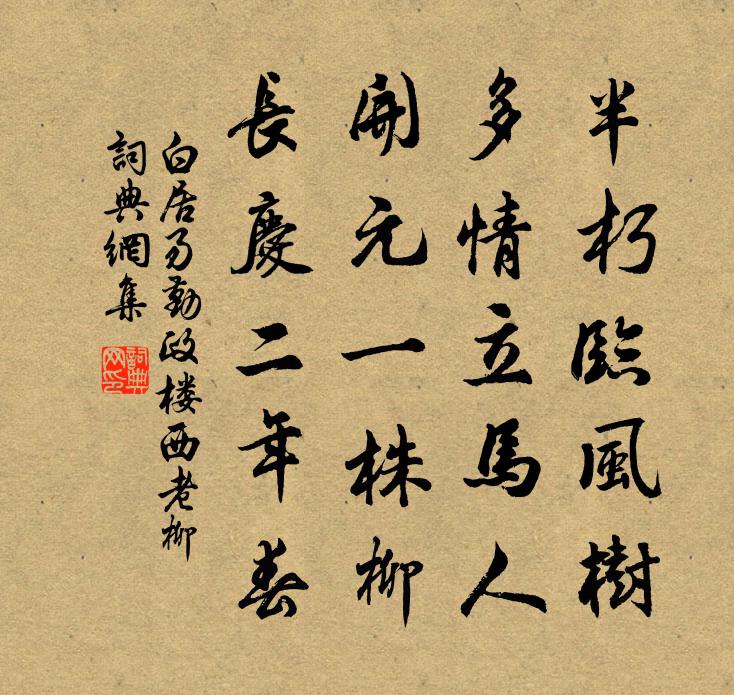 半朽臨風樹
多情立馬人
開元一株柳
長慶二年春
白居易勤政楼西老柳
詞典網集
詞典网印